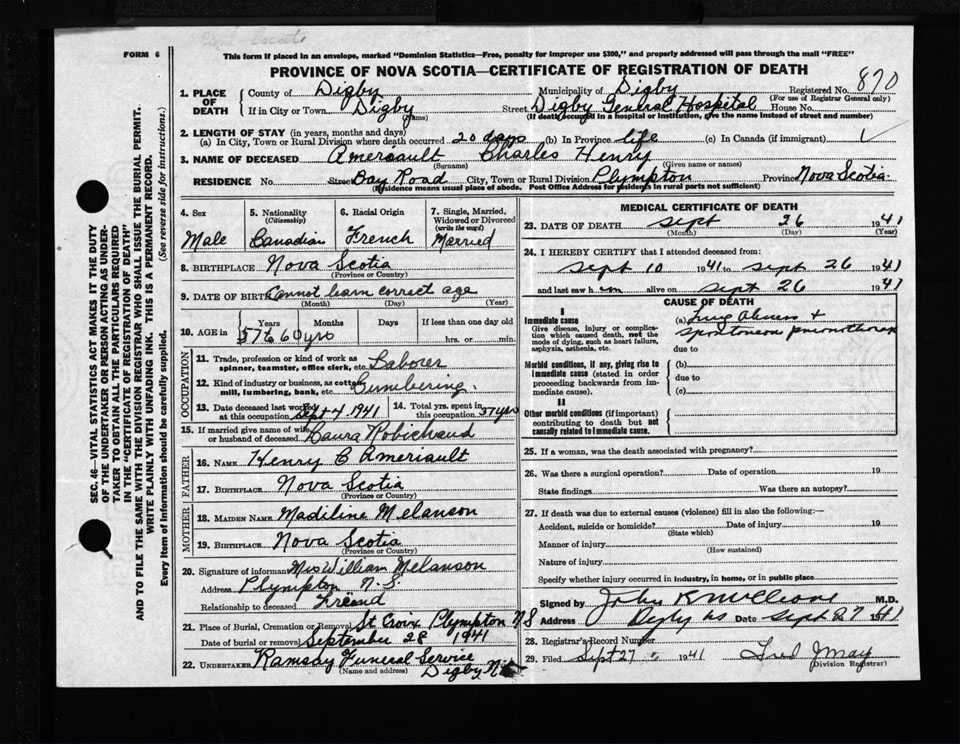 FORM 6
This form if placed in an envelope, marked "Dominion Statistics—Free, penalty for improper use $300," and properly addressed will pass through the mail "FREE"
PROVINCE OF NOVA SCOTIA—CERTIFICATE OF REGISTRATION OF DEATH
870
1. PLACE OF DEATH
County of Digby Municipality of Digby Registered No.
(For use of Registrar General only)
If in City or Town Digby Street Digby General Hospital House No.
(Name) (If death occurred in a hospital or institution, give the name instead of street and number)
2. LENGTH OF STAY (in years, months and days)
(a) In City, Town or Rural Division where death occurred 20 days (b) In Province life (c) In Canada (if immigrant)
3. NAME OF DECEASED Ameriault Charles Henry
(Surname) (Given name or names)
RESIDENCE No. Street Bay Road City, Town or Rural Division Plympton Province Nova Scotia.
(Residence means usual place of abode. Post Office Address for residents in rural parts not sufficient)
SEC. 46—VITAL STATISTICS ACT MAKES IT THE DUTY
OF THE UNDERTAKER OR PERSON ACTING AS UNDER-
TAKER TO OBTAIN ALL THE PARTICULARS REQUIRED
IN THE "CERTIFICATE OF REGISTRATION OF DEATH"
AND TO FILE THE SAME WITH THE DIVISION REGISTRAR WHO SHALL ISSUE THE BURIAL PERMIT.
WRITE PLAINLY WITH UNFADING INK. THIS IS A PERMANENT RECORD.
Every item of Information should be carefully supplied. (See reverse side for instructions.)
4. Sex
Male
5. Nationality
(Citizenship)
Canadian
6. Racial Origin
French
7. Single, Married,
Widowed or Divorced
(write the word)
Married
8. BIRTHPLACE Nova Scotia
(Province or Country)
9. DATE OF BIRTH Cannot learn correct age
(Month) (Day) (Year)
10. AGE in Years Months Days If less than one day old
57 to 60 yrs hrs. or min.
OCCUPATION
11. Trade, profession or kind of work as
spinner, teamster, office clerk, etc. Laborer
12. Kind of industry or business, as cotton
mill, lumbering, bank, etc. Lumbering.
13. Date deceased last worked
at this occupation Sept 4 1941
14. Total yrs. spent in
this occupation 57 yrs
15. If married give name of wife
or husband of deceased Laura Robichaud
FATHER
16. NAME Henry C Ameriault
17. BIRTHPLACE Nova Scotia
(Province or Country)
MOTHER
18. MAIDEN NAME Madiline Melanson
19. BIRTHPLACE Nova Scotia
(Province or Country)
20. Signature of informant Mrs William Melanson
Address Plympton N.S.
Relationship to deceased Friend
21. Place of Burial, Cremation or Removal St Croix Plympton NS
Date of burial or removal September 28 1941
22. UNDERTAKER Ramsay Funeral Service
(Name and address) Digby N.S.
MEDICAL CERTIFICATE OF DEATH
23. DATE OF DEATH Sept 26 1941
(Month) (Day) (Year)
24. I HEREBY CERTIFY that I attended deceased from:
Sept 10 1941 to Sept 26 1941
and last saw him alive on Sept 26 1941
CAUSE OF DEATH
I
Immediate cause
Give disease, injury or complica-
tion which caused death, not the
mode of dying, such as heart failure,
asphyxia, asthenia, etc.
(a) Lung Abscess &
due to
Morbid conditions, if any, giving rise to
immediate cause (stated in order
proceeding backwards from im-
mediate cause).
(b)
due to
(c)
II
Other morbid conditions (if important)
contributing to death but not
causally related to immediate cause.
25. If a woman, was the death associated with pregnancy?
26. Was there a surgical operation? Date of operation 19
State findings Was there an autopsy?
27. If death was due to external causes (violence) fill in also the following:—
Accident, suicide or homicide? Date of injury 19
(State which)
Manner of injury
(How sustained)
Nature of injury
Specify whether injury occurred in industry, in home, or in public place
Signed by John R M.D.
Address Digby NS Date Sept 27 1941
28. Registrar's Record Number
29. Filed Sept 27 1941 Fred J May
(Division Registrar)